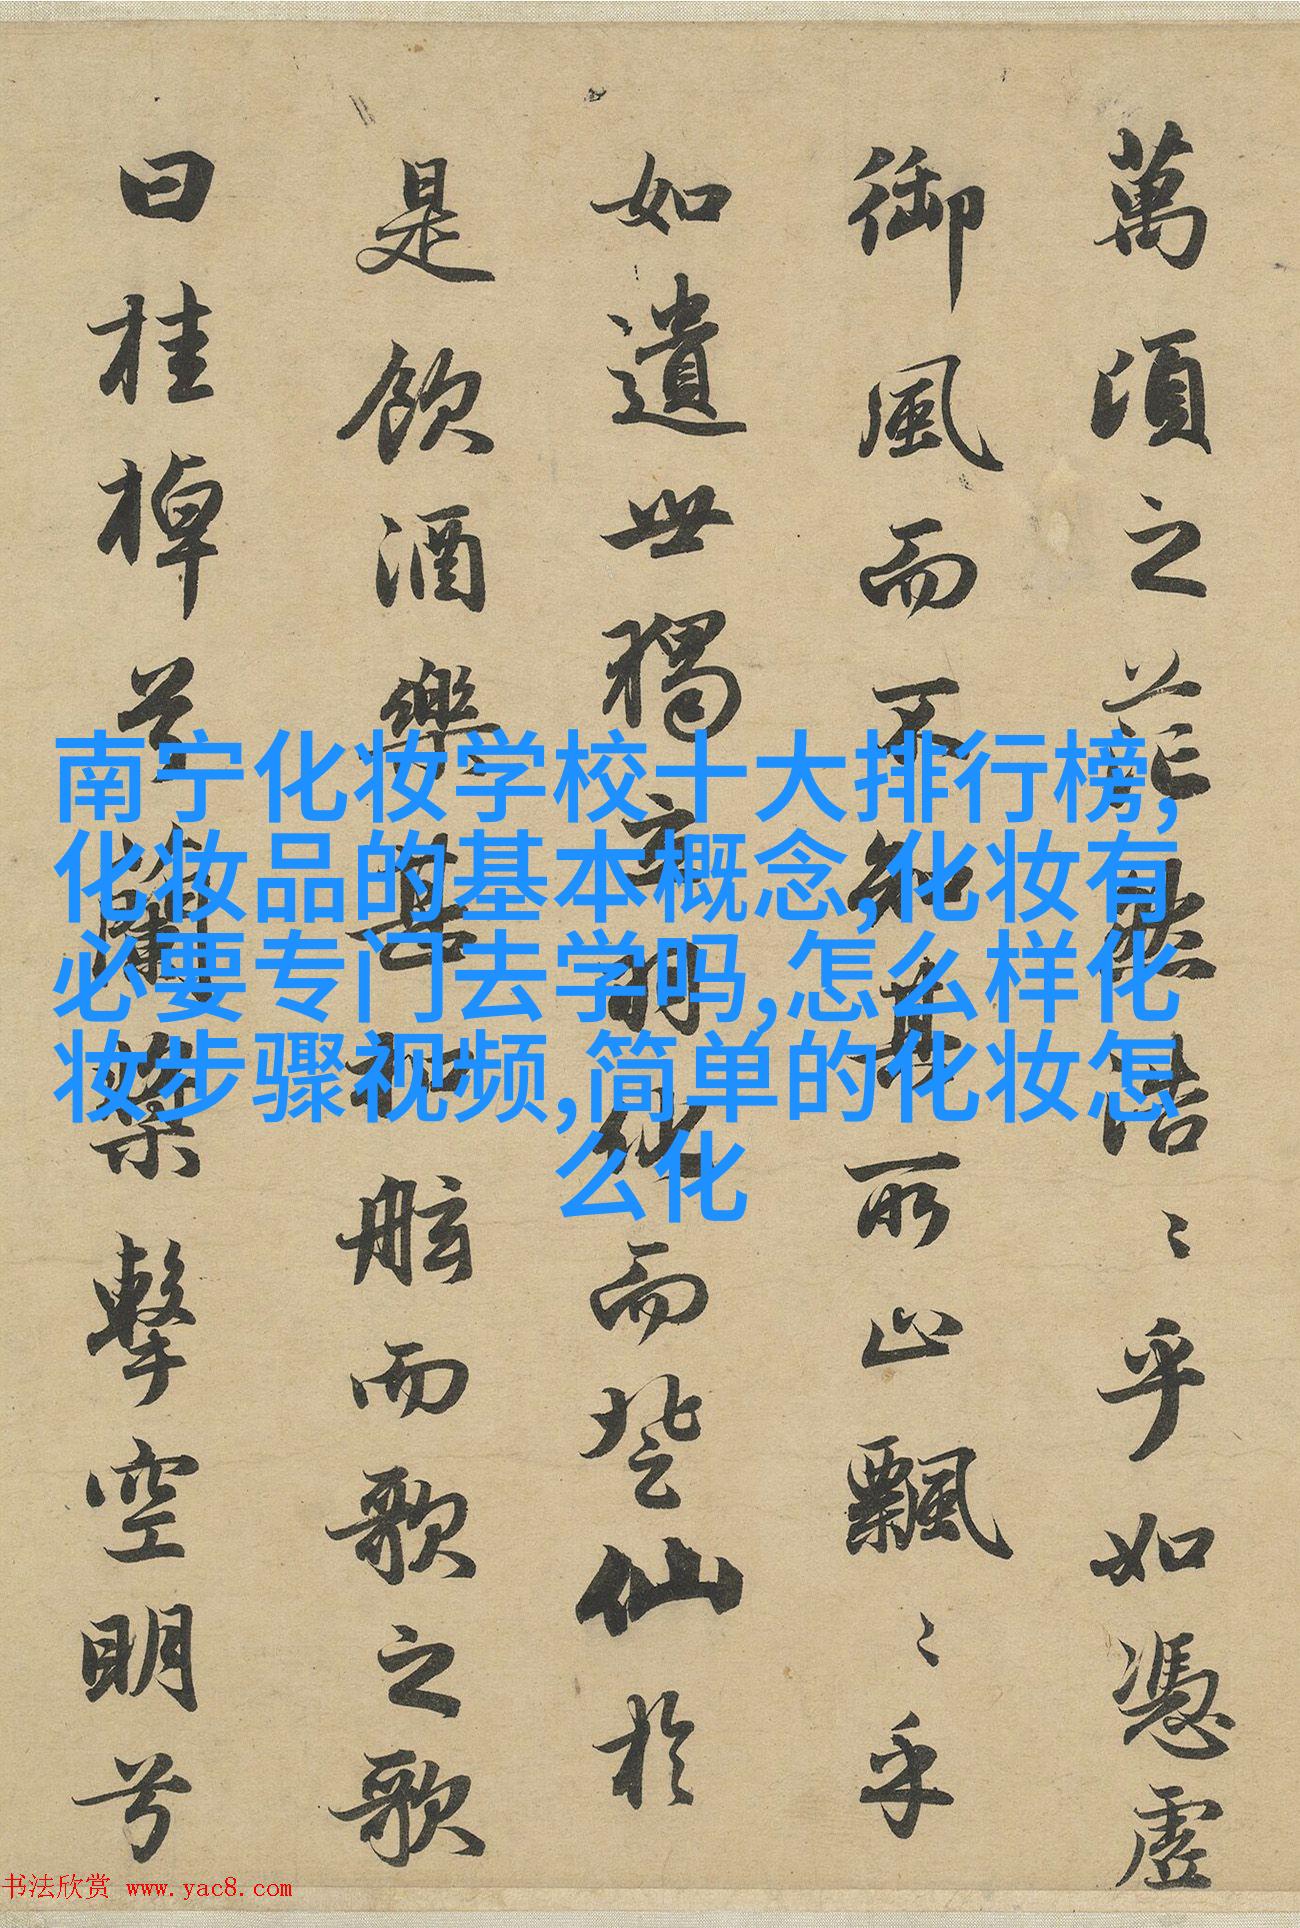 萬頃之茫然浩〻乎如憑虛
御風而不知其所止飄〻乎
如遺世獨立羽化而登仙於
是飲酒樂甚扣舷而歌之歌
曰桂棹兮蘭槳擊空明兮
南宁化妆学校十大排行榜,
化妆品的基本概念,化妆有
必要专门去学吗,怎么样化
妆步骤视频,简单的化妆怎
么化
书法欣赏 www.yac8.com